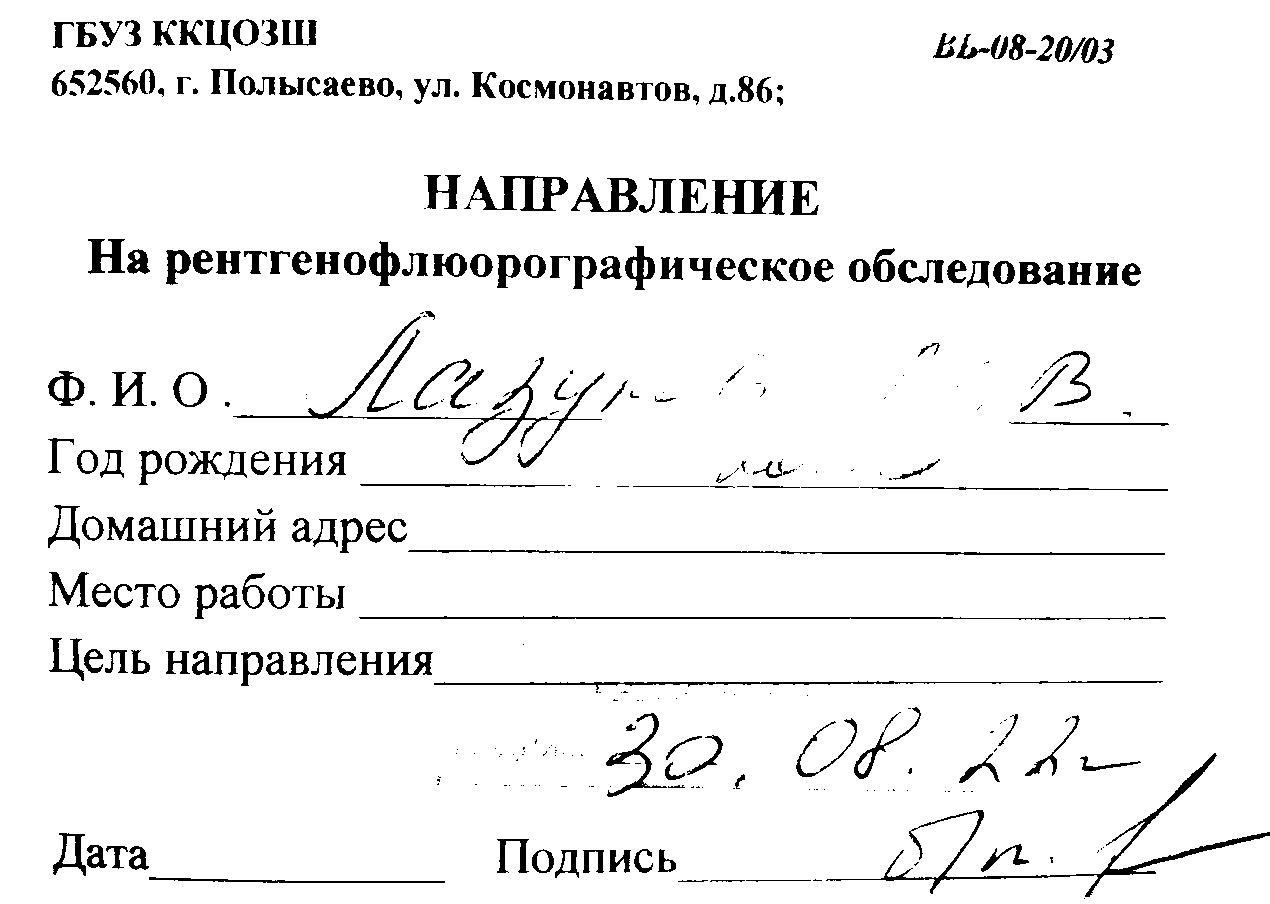 ГБУЗ ККЦОЗШ
ВЬ-08-20/03
652560, г. Полысаево, ул. Космонавтов, д.86;
НАПРАВЛЕНИЕ
На рентгенофлюорографическое обследование
Ф. И. О . В.
Год рождения
Домашний адрес
Место работы
Цель направления
30.08.22г
Дата Подпись